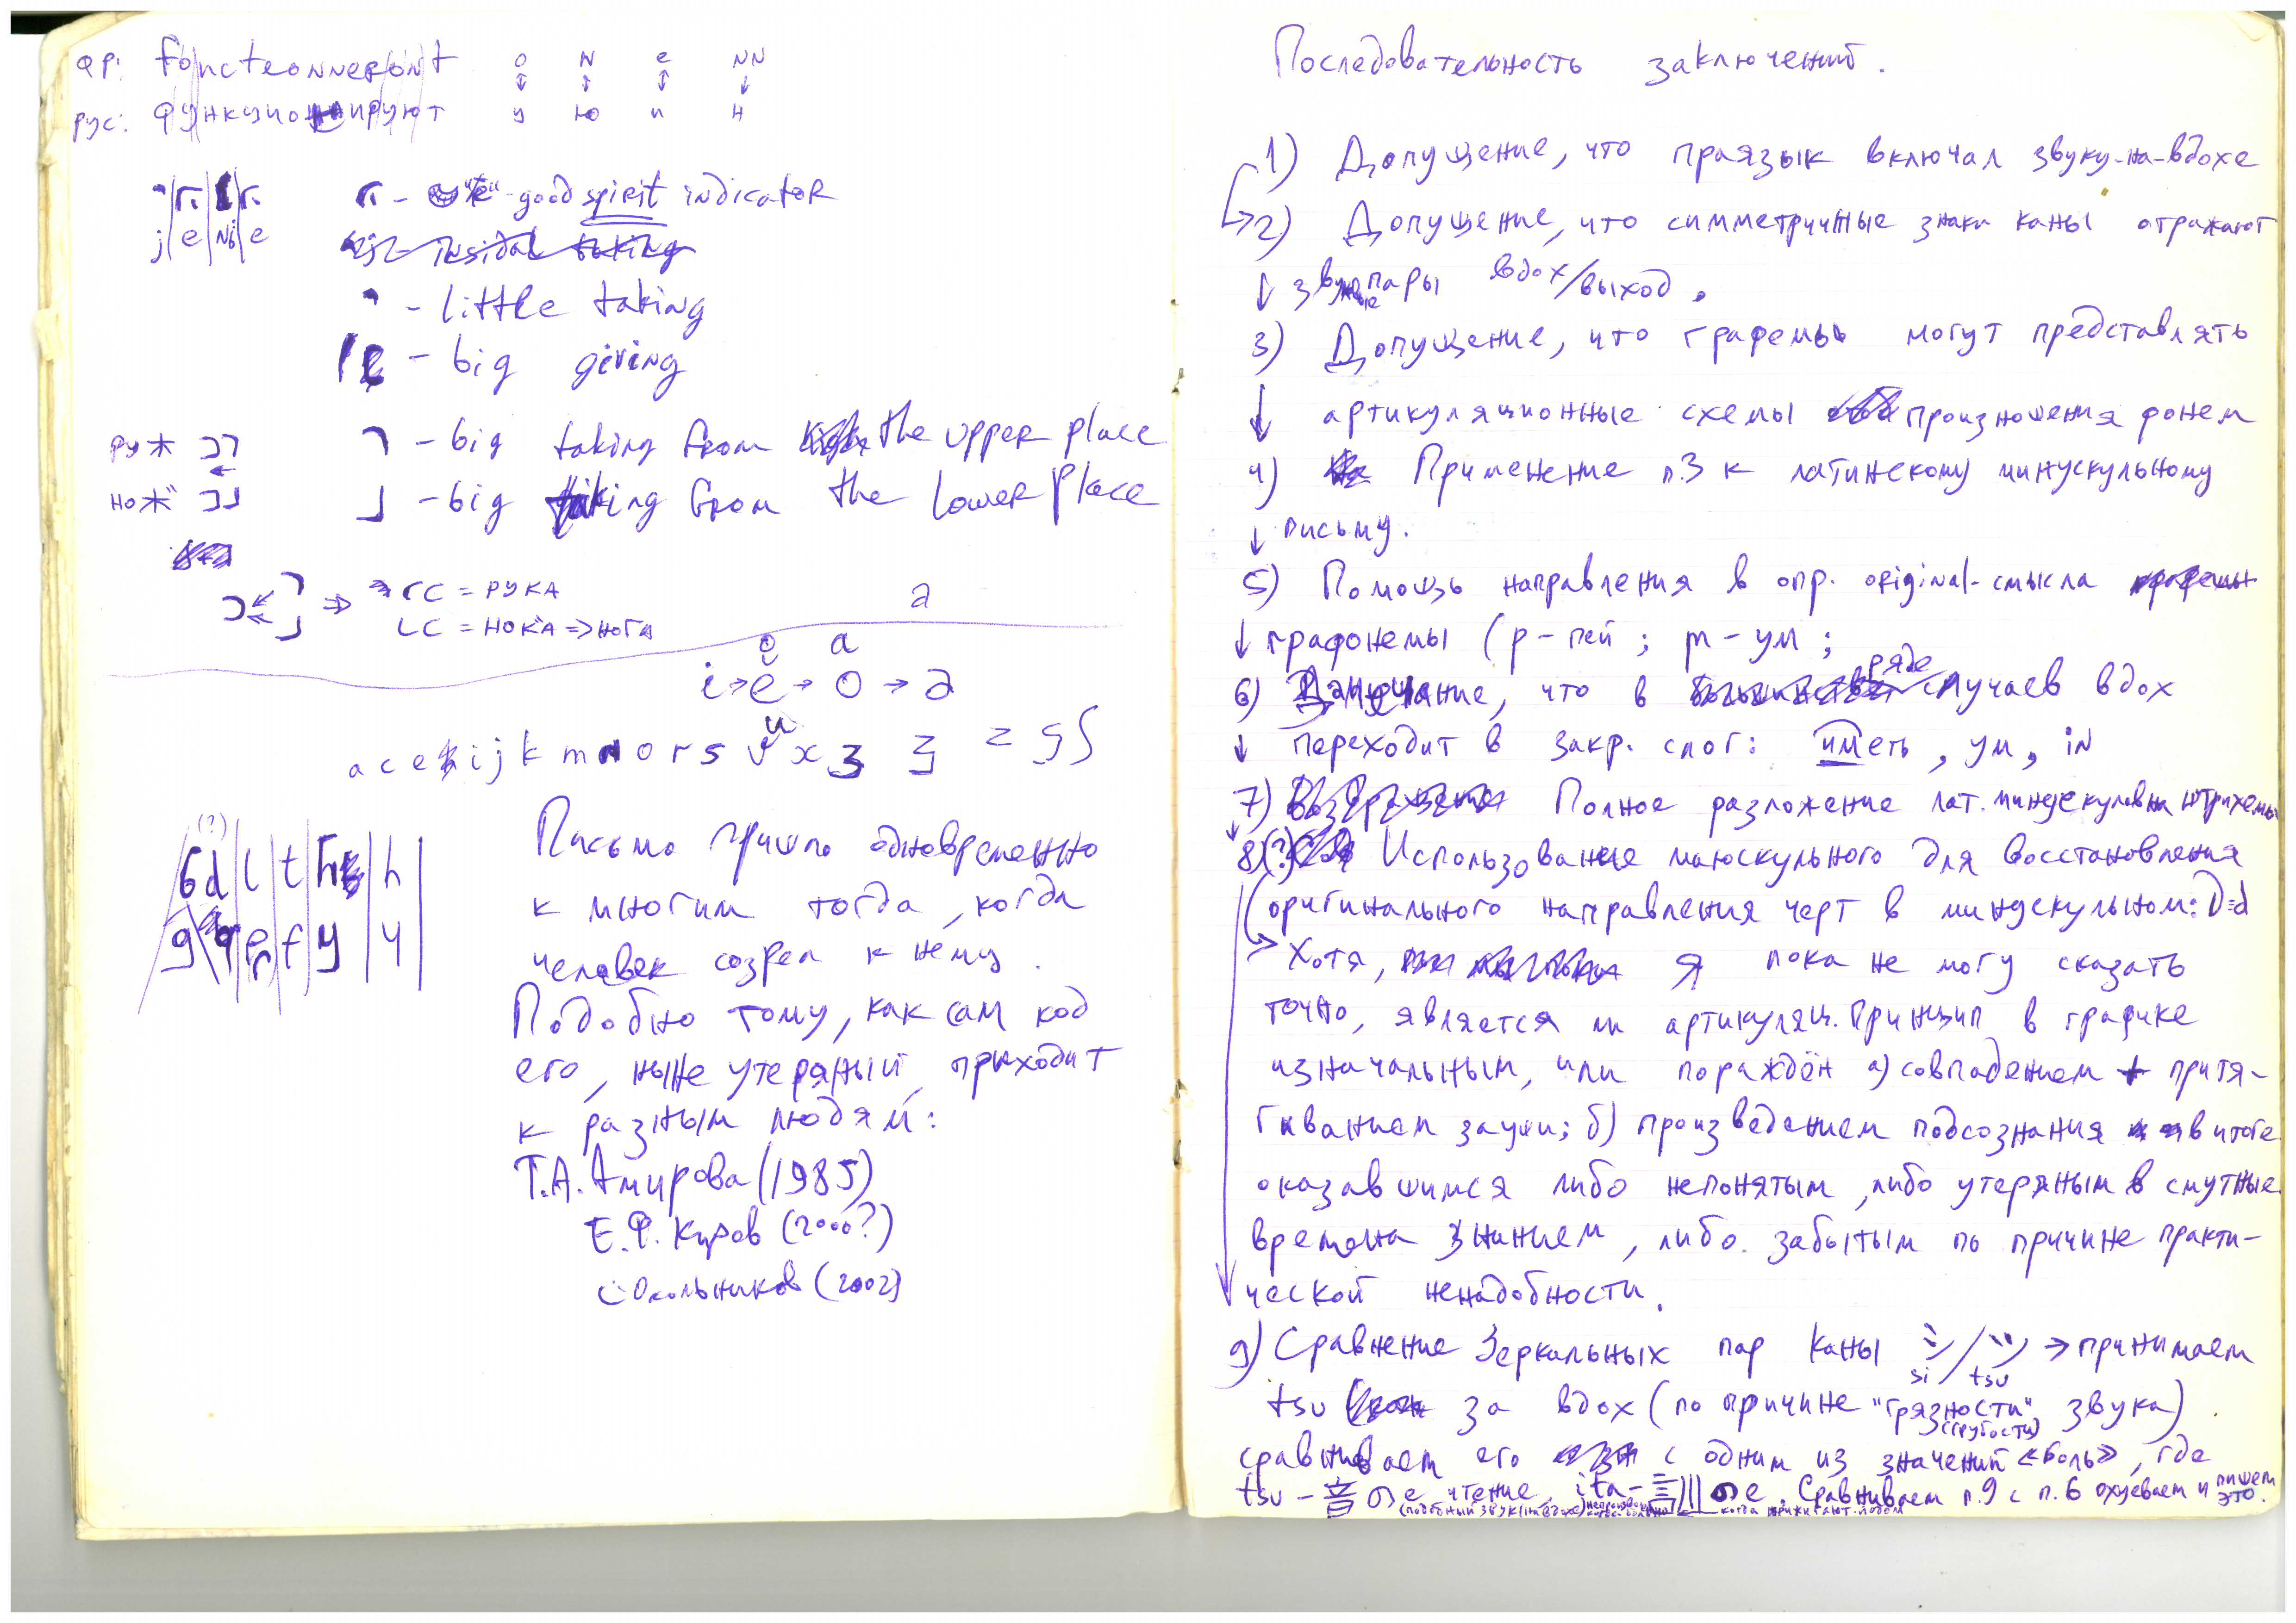 фр: fonctionneront o N e NN
рус: функционируют у ю и н
r - "e" - good spirit indicator
j e Ni e
- little taking
- big giving
РУЖ ㄱ - big taking from the upper place
НОЖ ┘ - big taking from the lower place
⇒ ГС = РУКА
LC = НОКА => НОГА
a
e a
i → e → o → a
u
a c e h i j k m n o r s v x з
(?)
б d l t h h
g q e f y ч
Письмо пришло одновременно
к многим тогда, когда
человек созрел к нему.
Подобно тому, как сам код
его, ныне утеряный, приходит
к разным людям:
Т.А. Амирова (1985)
Е.Ф. Куров (2000?)
Сокольников (2002)
Последовательность заключений.
1) Допущение, что праязык включал звуки-на-вдохе
2) Допущение, что симметричные знаки каны отражают
↓ звуковые пары вдох/выход.
3) Допущение, что графемы могут представлять
↓ артикуляционные схемы произношения фонем
4) Применение п.3 к латинскому минускульному
↓ письму.
5) Помощь направления в опр. original-смысла
↓ графонемы (p - пей; m - ум;
6) Замечание, что в ряде случаев вдох
↓ переходит в закр. слог: иметь, ум, in
7) Полное разложение лат. миндскулов на штрихемы
↓ 8)(?) Использование маюскульного для восстановления
оригинального направления черт в миндскульном: D=d
→ Хотя, я пока не могу сказать
точно, является ли артикуляц. принцип в графике
изначальным, или пораждён а) совпадением + притя-
гиванием за уши; б) произведением подсознания в итоге
оказавшимся либо непонятым, либо утеряным в смутные
времена знанием, либо забытым по причине практи-
ческой ненадобности.
9) Сравнение зеркальных пар каны シ/ツ → принимаем
si / tsu
tsu за вдох (по причине "грязности" звука)
(грубости)
сравниваем его с одним из значений «боль», где
tsu - 音のe чтение, ita - 訓のe. Сравниваем п.9 с п.6 охуеваем и пишем это.